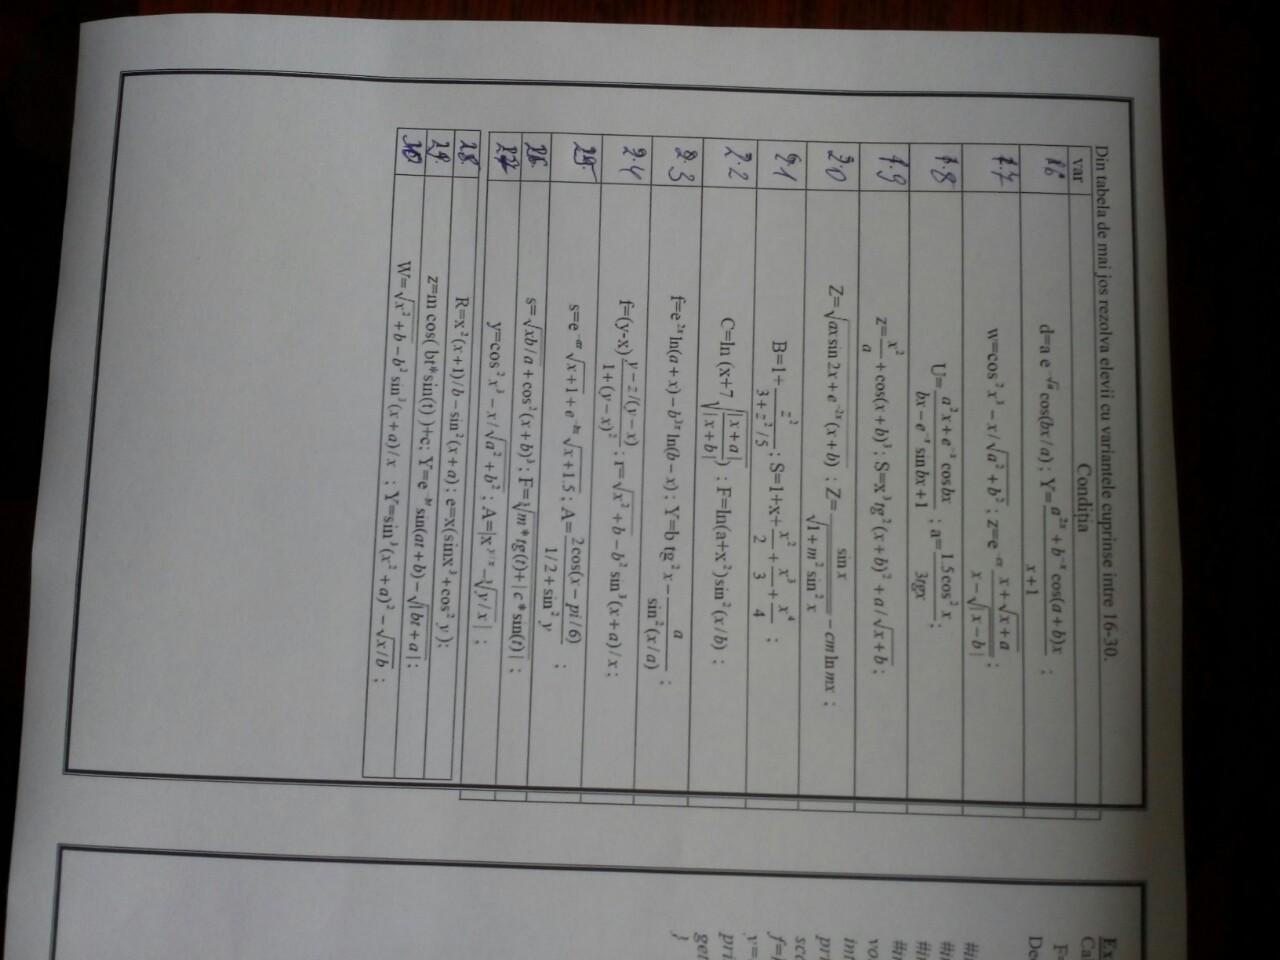 Din tabela de mai jos rezolva elevii cu variantele cuprinse intre 16-30.
var Condiția
16 d=a e^{-√a} cos(bx/a) ; Y=\frac{a^{2x}+b^{-x}cos(a+b)x}{x+1} ;
17 w=cos²x³−x/√(a²+b²) ; z=e^{-cx}\frac{x+√(x+a)}{x−√|x−b|} ;
18 U=\frac{a²x+e^{-x}cos bx}{bx−e^{-x}sin bx+1} ; a=\frac{1.5cos²x}{3tgx} ;
19 z=\frac{x²}{a}+cos(x+b)³ ; S=x³tg²(x+b)²+a/√(x+b) ;
20 Z=√(ax sin 2x+e^{-2x}(x+b)) ; Z=\frac{sin x}{√(1+m²sin²x)}−cm ln mx ;
21 B=1+\frac{z²}{3+z²/5} ; S=1+x+\frac{x²}{2}+\frac{x³}{3}+\frac{x⁴}{4} ;
22 C=ln (x+7√\frac{|x+a|}{|x+b|}) ; F=ln(a+x²)sin²(x/b) ;
23 f=e^{2x}ln(a+x)−b^{3x}ln(b−x) ; Y=b tg²x−\frac{a}{sin²(x/a)} ;
24 f=(y-x)\frac{y−z/(y−x)}{1+(y−x)²} ; r=√(x²+b)−b²sin³(x+a)/x ;
25 s=e^{-ax}√(x+1)+e^{-bx}√(x+1.5) ; A=\frac{2cos(x−pi/6)}{1/2+sin²y} ;
26 s=√(xb/a)+cos²(x+b)³ ; F=∛(m*tg(t)+|c*sin(t)|) ;
27 y=cos²x³−x/√(a²+b²) ; A=|x^{y/x}−∛(y/x)| ;
28 R=x²(x+1)/b−sin²(x+a) ; e=x(sinx³+cos²y) ;
29 z=m cos( bt*sin(t) )+c; Y=e^{-bt}sin(at+b)−√|bt+a| ;
30 W=√(x²+b)−b²sin³(x+a)/x ; Y=sin³(x²+a)²−√(x/b) ;
Ex
Ca
F=
De
#in
#in
#in
vo
int
pri
sca
f=
y=
pri
get
}